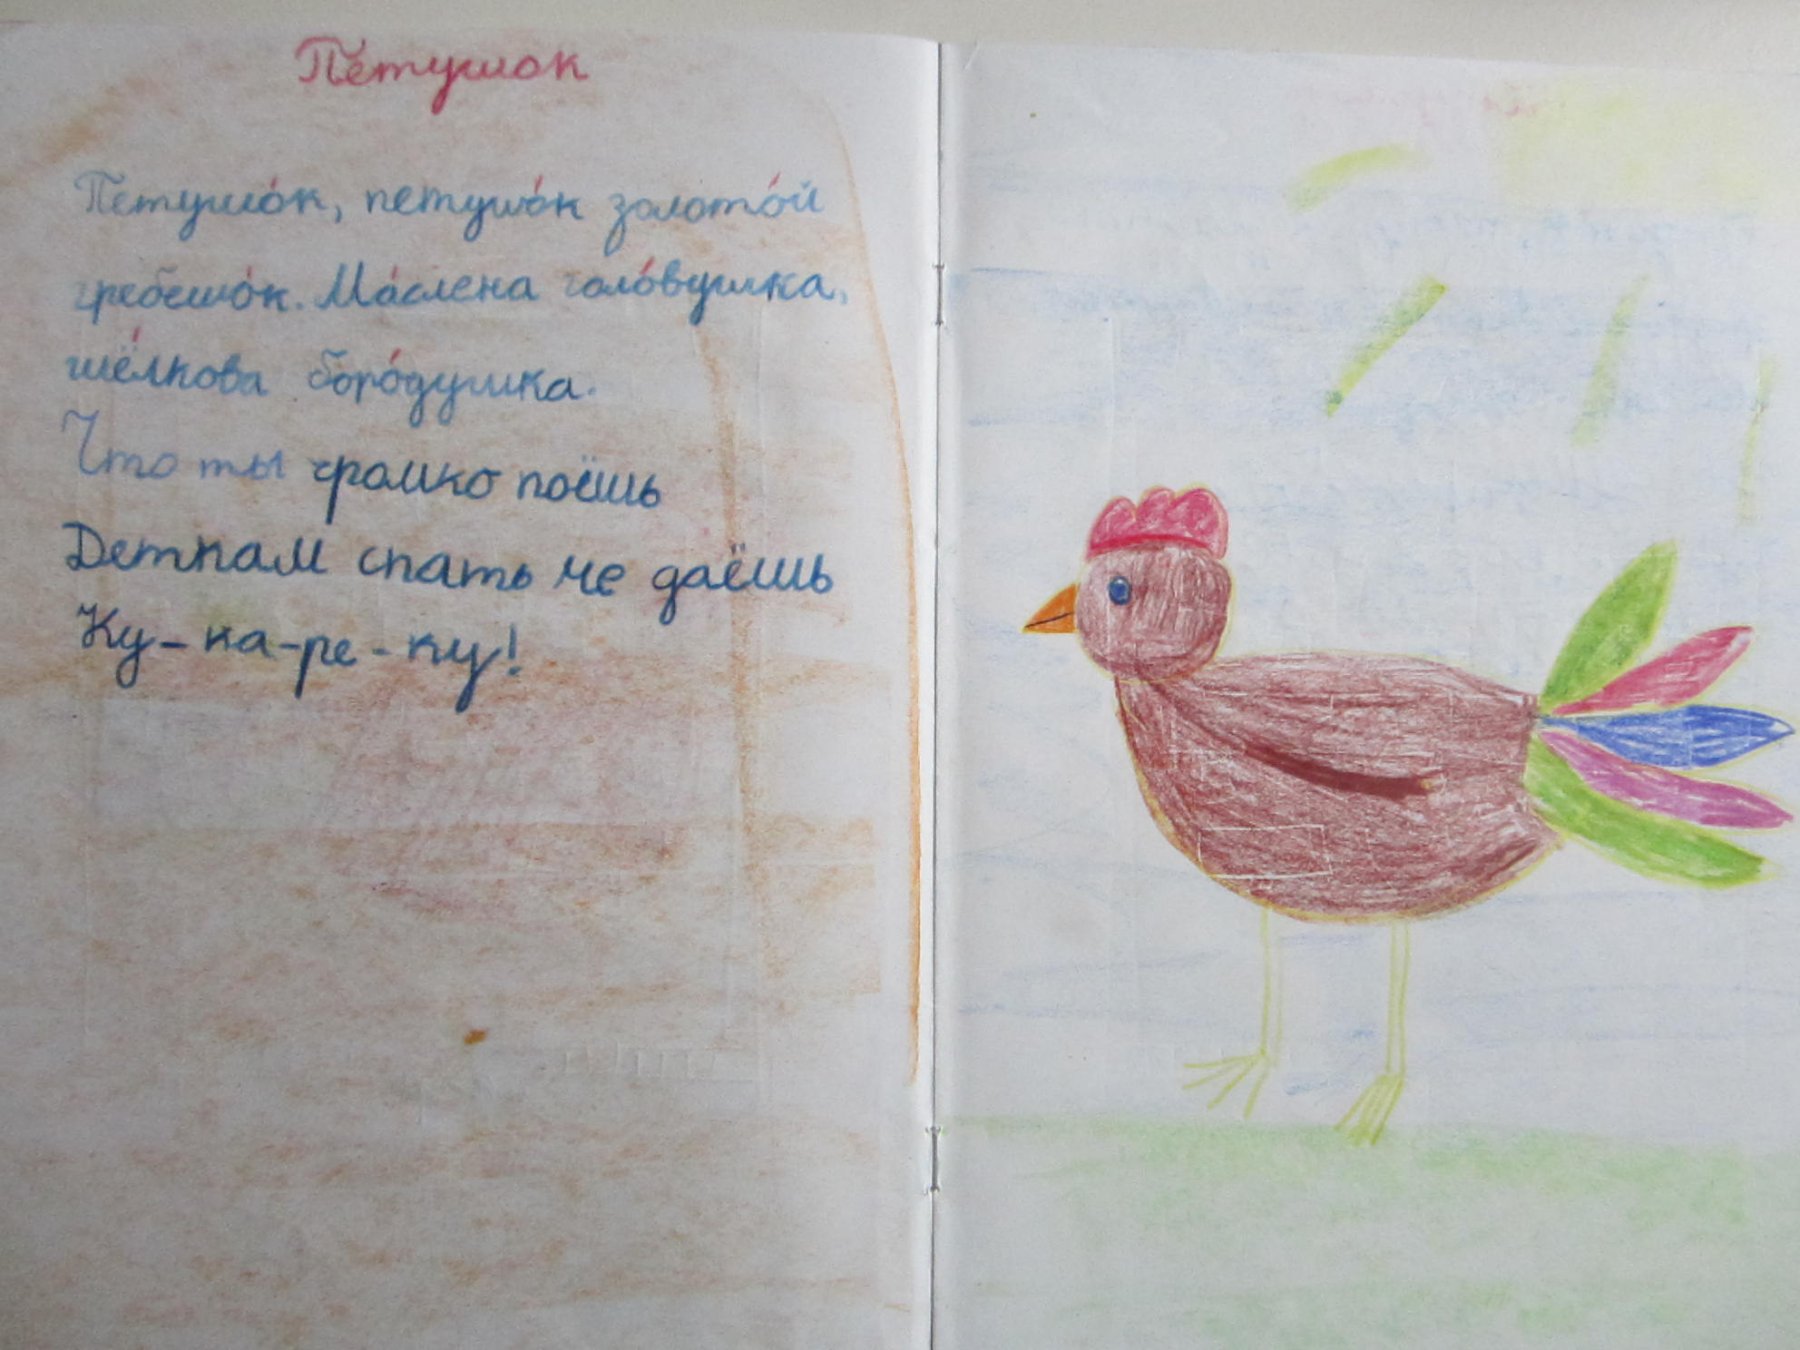 Петушок
Петушо́к, петушо́к золото́й
гребешо́к. Ма́слена голо́вушка,
шёлкова боро́душка.
Что ты громко поёшь
Деткам спать не даёшь
Ку-ка-ре-ку!